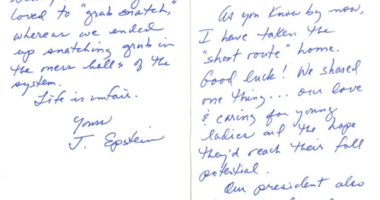 loved to "grab snatch,"
whereas we ended
up snatching grub in
the mess halls of the
system.
Life is unfair.
Yours
J. Epstein
As you know by now,
I have taken the
"short route" home.
Good luck! We shared
one thing... our love
& caring for young
ladies and the hope
they'd reach their full
potential.
Our president also